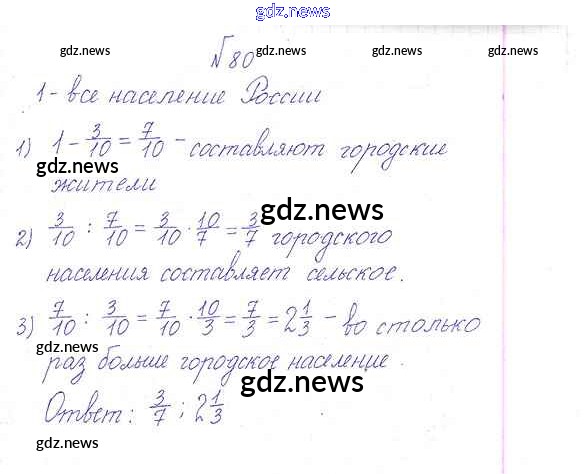 gdz.news
gdz.news gdz.news gdz.news
№80
1 - все население России
1) 1 - 3/10 = 7/10 - составляют городские
gdz.news gdz.news
жители
gdz.news
2) 3/10 : 7/10 = 3/10 · 10/7 = 3/7 городского
населения составляет сельское.
3) 7/10 : 3/10 = 7/10 · 10/3 = 7/3 = 2 1/3 - во столько
gdz.news gdz.news
раз больше городское население.
gdz.news
Ответ: 3/7 ; 2 1/3
gdz.news gdz.news